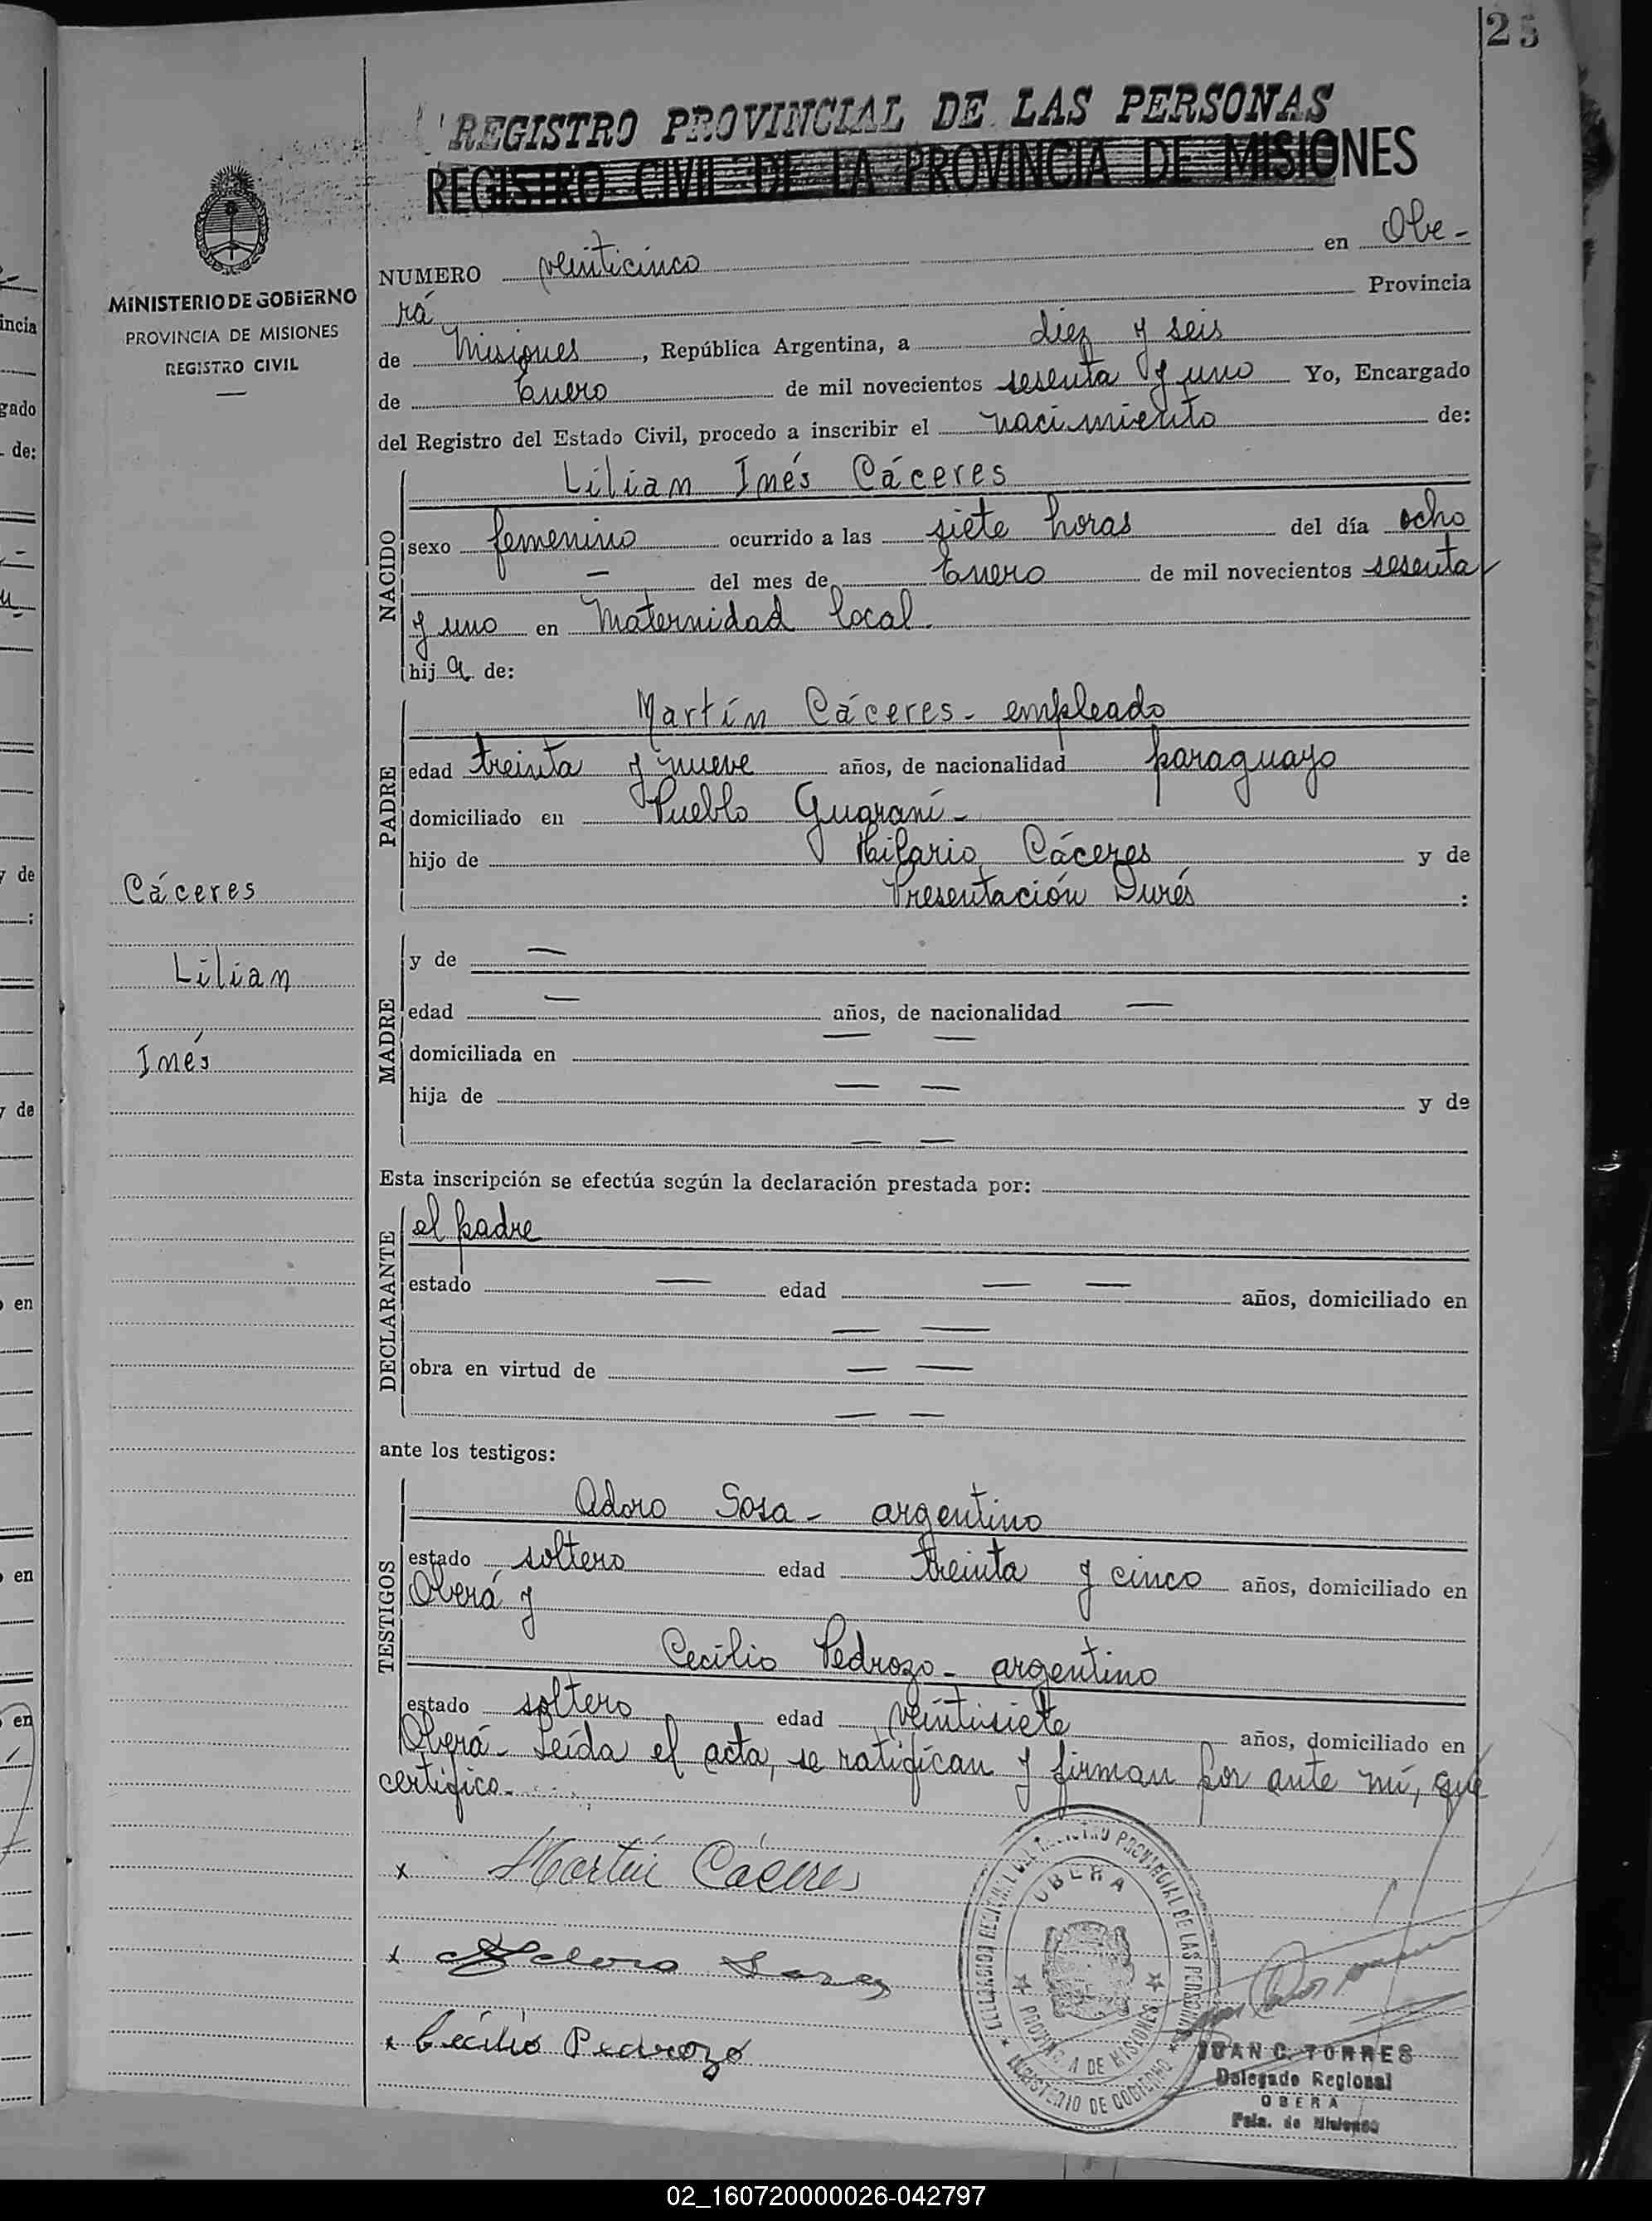 25
REGISTRO PROVINCIAL DE LAS PERSONAS
REGISTRO CIVIL DE LA PROVINCIA DE MISIONES
MINISTERIO DE GOBIERNO
PROVINCIA DE MISIONES
REGISTRO CIVIL
NUMERO veinticinco en Obe-
rá Provincia
de Misiones, República Argentina, a diez y seis
de Enero de mil novecientos sesenta y uno Yo, Encargado
del Registro del Estado Civil, procedo a inscribir el nacimiento de:
NACIDO
Lilian Inés Cáceres
sexo femenino ocurrido a las siete horas del día ocho
— del mes de Enero de mil novecientos sesenta
y uno en Maternidad local.
hija de:
PADRE
Martín Cáceres - empleado
edad treinta y nueve años, de nacionalidad paraguayo
domiciliado en Pueblo Guaraní -
hijo de Hilario Cáceres y de
Presentación Durés :
Cáceres
Lilian
Inés
MADRE
y de —
edad — años, de nacionalidad —
domiciliada en — —
hija de — — y de
— —
Esta inscripción se efectúa según la declaración prestada por:
DECLARANTE
el padre
estado — edad — — años, domiciliado en
— —
obra en virtud de — —
— —
ante los testigos:
TESTIGOS
Adoro Sosa - argentino
estado soltero edad treinta y cinco años, domiciliado en
Oberá y
Cecilio Pedrozo - argentino
estado soltero edad veintisiete años, domiciliado en
Oberá - Leída el acta, se ratifican y firman por ante mí, que
certifico.-
x Martín Cáceres
x Adoro Sosa
x Cecilio Pedrozo
OBERA
PROVINCIA DE MISIONES
MINISTERIO DE GOBIERNO
JUAN C. TORRES
Delegado Regional
OBERA
Pcia. de Misiones
incia
gado
de:
y de
:
y de
en
en
en
02_160720000026-042797